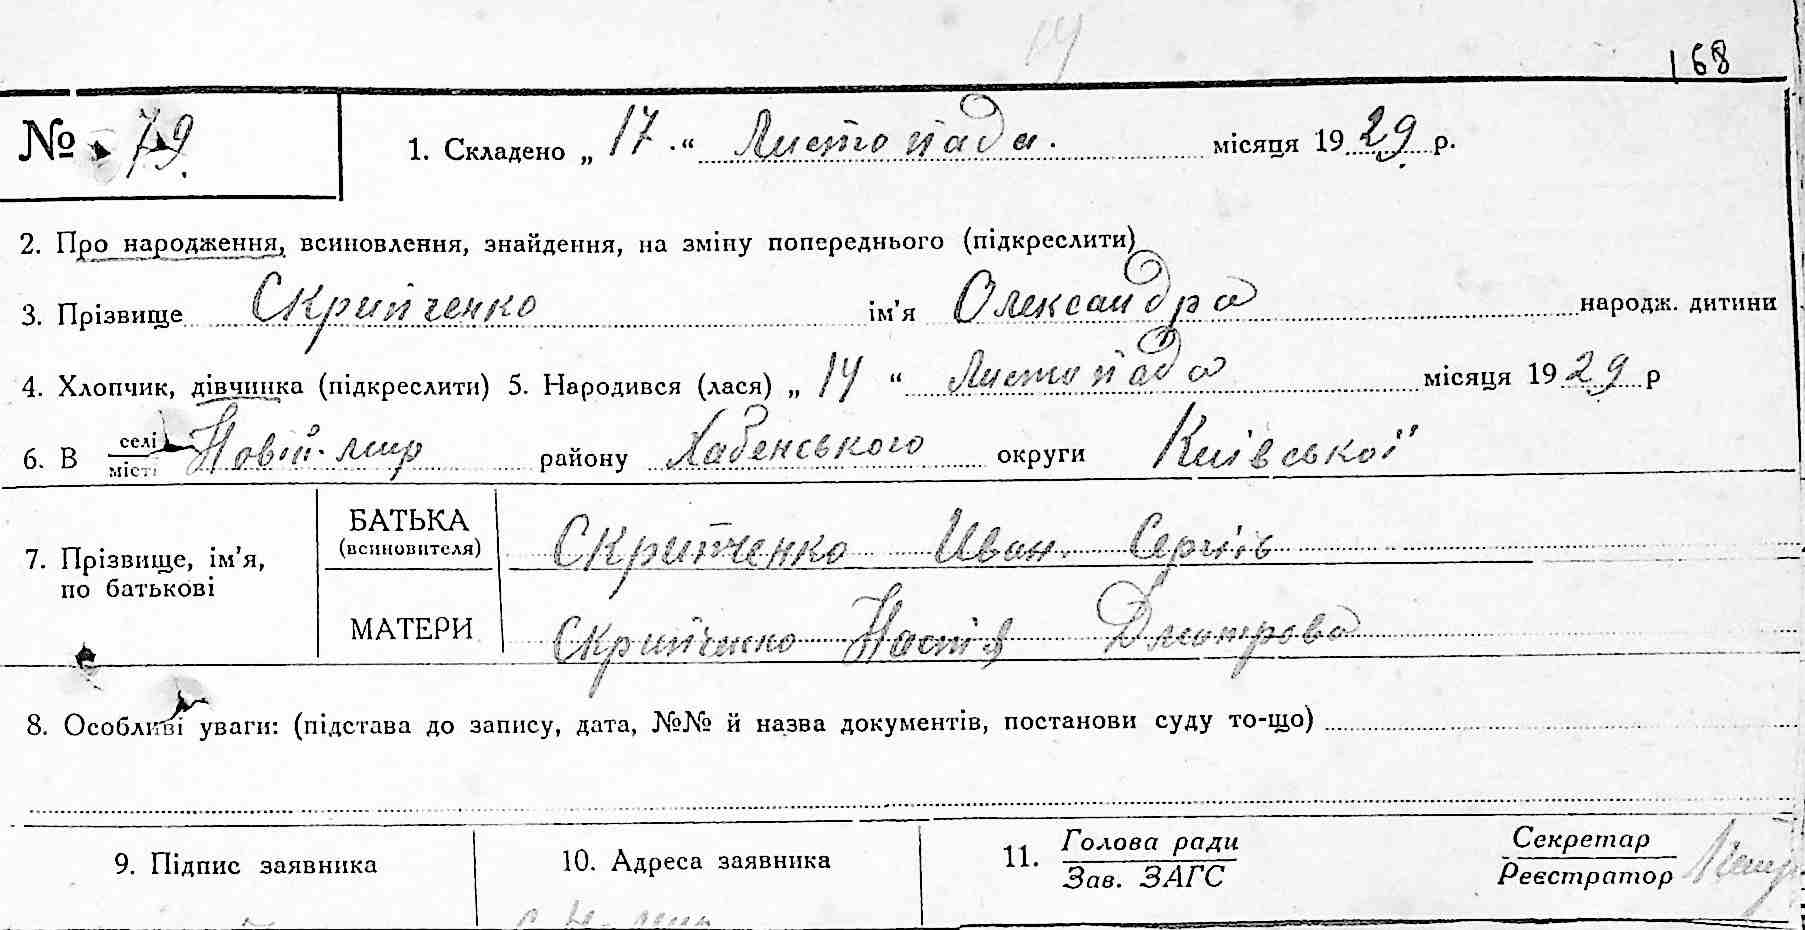 14
168
№ 79. 1. Складено „ 17 “ Листопада. місяця 1929 р.
2. Про народження, всиновлення, знайдення, на зміну попереднього (підкреслити)
3. Прізвище Скрипченко ім'я Олександра народж. дитини
4. Хлопчик, дівчинка (підкреслити) 5. Народився (лася) „ 14 “ Листопада місяця 1929 р
6. В селі Новій-мир району Хабенського округи Київської
місті
7. Прізвище, ім'я, по батькові
БАТЬКА (всиновителя) Скрипченко Иван Сергіїв
МАТЕРИ Скрипченко Настія Дмитрова
8. Особливі уваги: (підстава до запису, дата, №№ й назва документів, постанови суду то-що)
9. Підпис заявника 10. Адреса заявника 11. Голова ради Секретар
Зав. ЗАГС Реєстратор